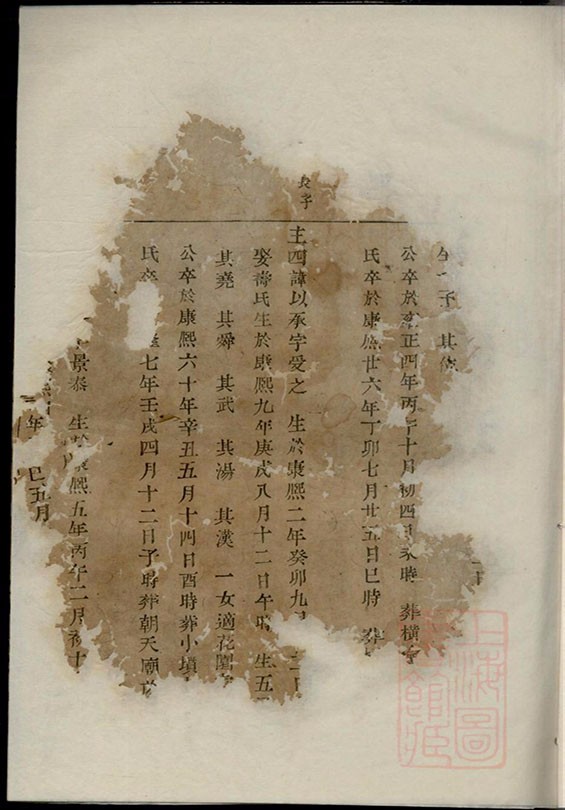 子 其
公卒於雍正四年丙午十月初四日亥時 葬橫
氏卒於康熙廿六年丁卯七月廿五日巳時 葬
長子
主四諱以承字受之 生於康熙二年癸卯九月
娶蔣氏生於康熙九年庚戌八月十二日午時 生五
其堯 其舜 其武 其湯 其漢 一女適花園
公卒於康熙六十年辛丑五月十四日酉時葬小塤
氏卒 七年壬戌四月十二日子時葬朝天廟
景泰 生於康熙五年丙午二月初十
年 巳五月
上海圖
館藏